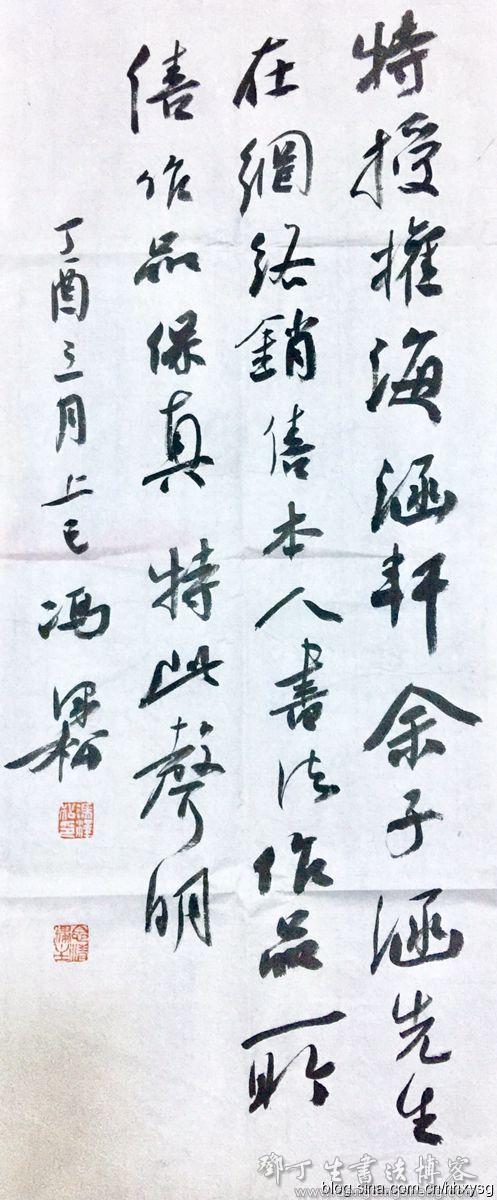 特授權海涵軒余子涵先生
在網絡銷售本人書法作品所
售作品保真特此聲明
丁酉三月上巳 冯
鄧丁生書法博客
blog.sina.com.cn/hhxysg